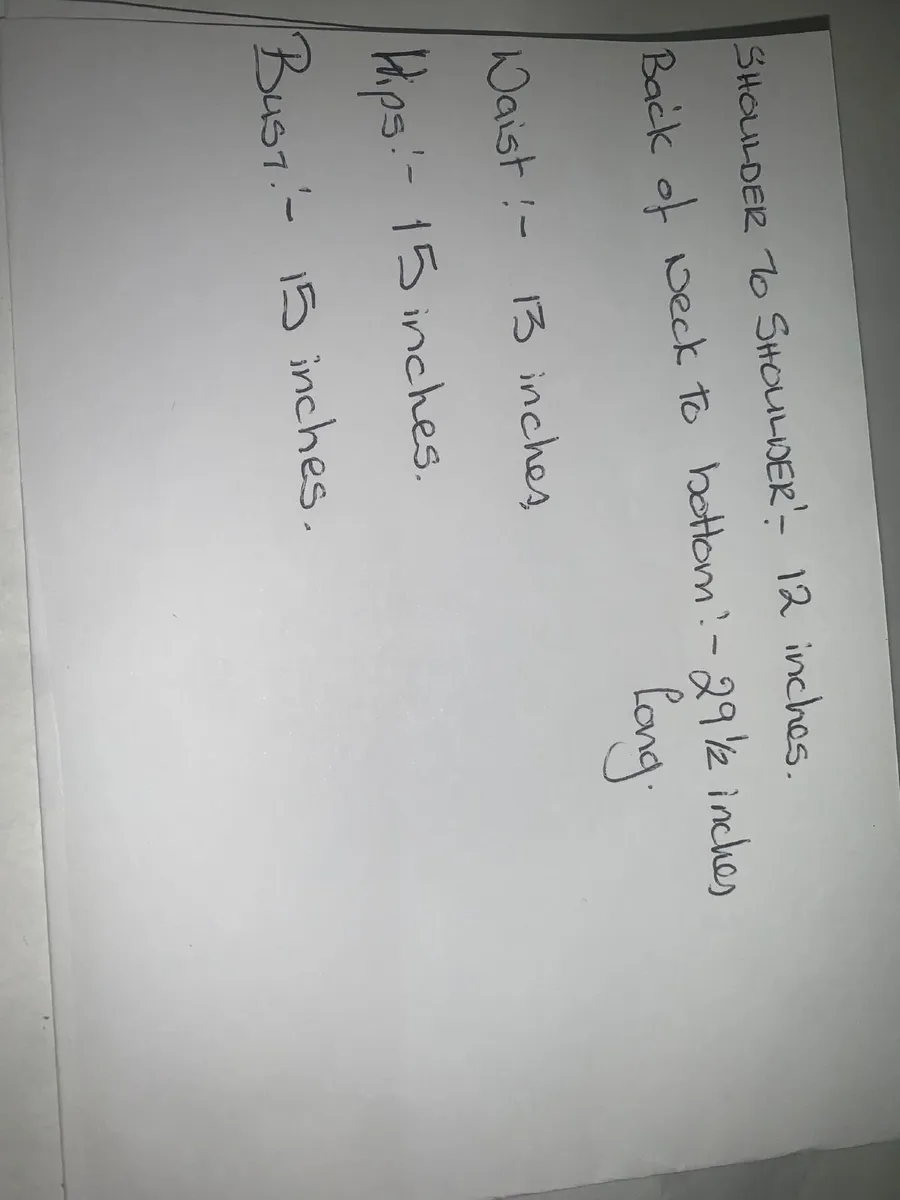 SHOULDER To SHOULDER:- 12 inches.
Back of Neck to bottom:- 29 1/2 inches
long.
Waist:- 13 inches,
Hips:- 15 inches.
Bust:- 15 inches.